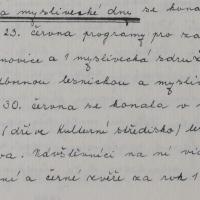 a myslivecké dny se kona
23. června programy pro za
novice a 1 myslivecká sdruž
dbornou lesnickou a mysliv
30. června se konala v
(dříve Kulturní středisko) les
va. Návštěvníci na ní vid
ní a černé zvěře za rok 1